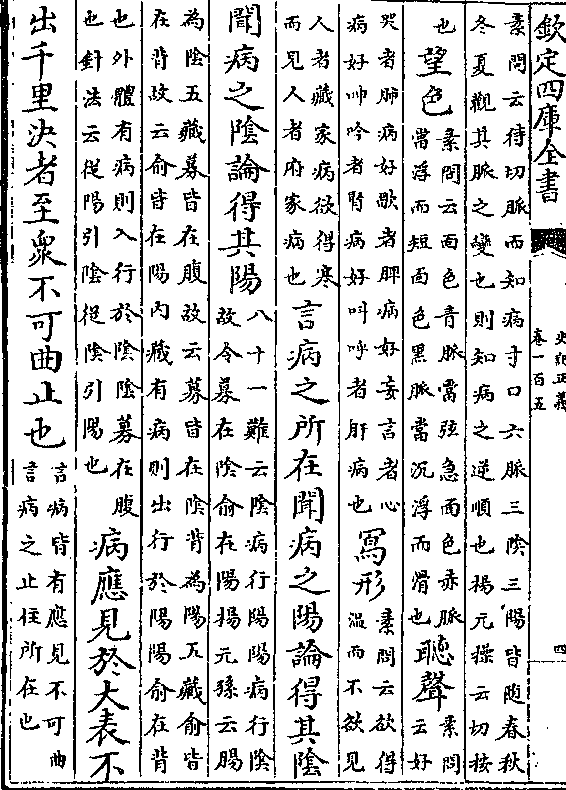 欽定四庫全書
史記正義
卷一百五
四
素問云待切脉而知病寸口六脉三隂三陽皆随春秋
冬夏觀其脉之變也則知病之逆順也揚元操云切按
也
望色
素問云面色青脉當弦急面色赤脉
當浮而短面色黑脉當沉浮而滑也
聽聲
素問
云好
哭者肺病好歌者脾病好妄言者心
病好呻吟者腎病好叫呼者肝病也
寫形
素問云欲得
温而不欲見
人者藏家病欲得寒
而見人者府家病也
言病之所在聞病之陽論得其隂
聞病之隂論得其陽
八十一難云隂病行陽陽病行隂
故令募在隂俞在陽揚元孫云腸
為隂五藏募皆在腹故云募皆在隂背為陽五藏俞皆
在背故云俞皆在陽内藏有病則出行於陽陽俞在背
也外體有病則入行於隂隂募在腹
也針法云從陽引隂從隂引陽也
病應見於大表不
出千里決者至衆不可曲止也
言病皆有應見不可曲
言病之止住所在也